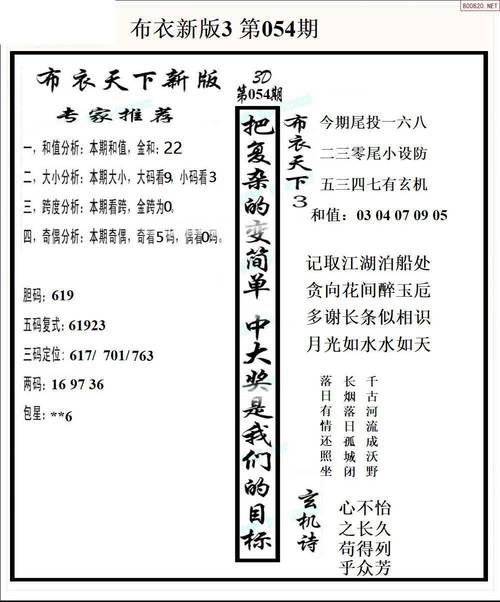 800820.NET
布衣新版3 第054期
布衣天下新版
专家推荐
一，和值分析：本期和值，金和：22
二，大小分析：本期大小，大码看9，小码看3
三，跨度分析：本期看跨，金跨为0。
四，奇偶分析：本期奇偶，奇看5码，偶看0码。
胆码：619
五码复式：61923
三码定位：617/ 701/763
两码：16 97 36
包星：**6
3D
第054期
把复杂的变简单 中大奖是我们的目标
布衣天下3
今期尾投一六八
二三零尾小设防
五三四七有玄机
和值：03 04 07 09 05
记取江湖泊船处
贪向花间醉玉卮
多谢长条似相识
月光如水水如天
落长千
日烟古
有落河
情日流
还孤成
照城沃
坐闭野
玄机诗
心不怡
之长久
苟得列
乎众芳